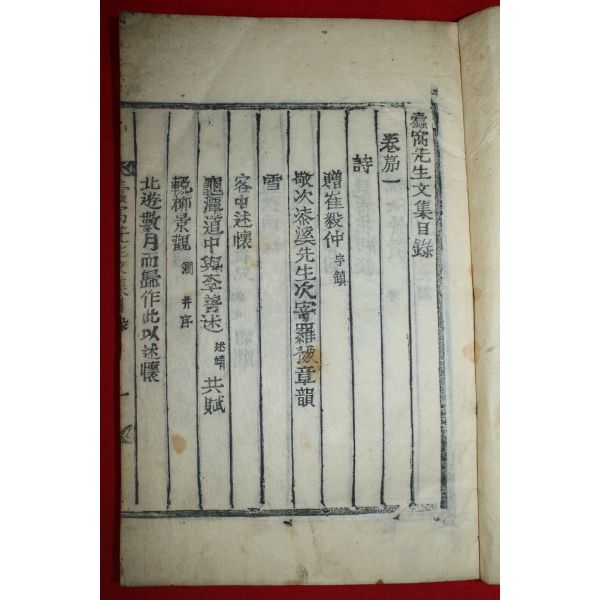 蠹窩先生文集目錄
卷苐一
詩
贈崔毅仲 字鎮
敬次漆溪先生次寄羅豫章韻
雪
客中述懷
龜潭道中與李善述 述靖 共賦
輓柳景觀 瀾 并序
北遊數月而歸作此以述懷